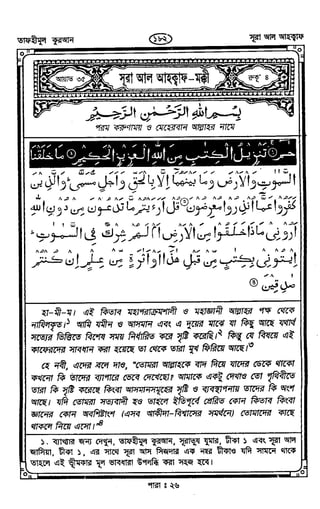 তাফহীমুল কুরআন ১৮২ সূরা আল আহক্বাফ
আয়াত ৩৫ সূরা আল আহক্বাফ-মক্কী রুকূ' ৪
بِسْمِ اللهِ الرَّحْمٰنِ الرَّحِيْمِ
পরম করুণাময় ও মেহেরবান আল্লাহর নামে
حٰمٓ ۚ تَنْزِيْلُ الْكِتٰبِ مِنَ اللهِ الْعَزِيْزِ الْحَكِيْمِ ۞ مَا خَلَقْنَا
السَّمٰوٰتِ وَالْاَرْضَ وَمَا بَيْنَهُمَآ اِلَّا بِالْحَقِّ وَاَجَلٍ مُّسَمًّى ۚ وَالَّذِيْنَ
كَفَرُوْا عَمَّآ اُنْذِرُوْا مُعْرِضُوْنَ ۞ قُلْ اَرَءَيْتُمْ مَّا تَدْعُوْنَ مِنْ دُوْنِ اللهِ
اَرُوْنِيْ مَاذَا خَلَقُوْا مِنَ الْاَرْضِ اَمْ لَهُمْ شِرْكٌ فِى السَّمٰوٰتِ ۚ
اِيْتُوْنِيْ بِكِتٰبٍ مِّنْ قَبْلِ هٰذَآ اَوْ اَثٰرَةٍ مِّنْ عِلْمٍ اِنْ كُنْتُمْ
صٰدِقِيْنَ ۞
হা-মী-ম। এই কিতাব মহাপরাক্রমশালী ও মহাজ্ঞানী আল্লাহর পক্ষ থেকে
নাযিলকৃত।১ আমি যমীন ও আসমান এবং এ দুয়ের মাঝে যা কিছু আছে যথার্থ
সত্যের ভিত্তিতে বিশেষ সময় নির্ধারিত করে সৃষ্টি করেছি।২ কিন্তু যে বিষয়ে এই
কাফেরদের সাবধান করা হয়েছে তা থেকে তারা মুখ ফিরিয়ে আছে।৩
হে নবী, এদের বলে দাও, "তোমরা আল্লাহকে বাদ দিয়ে যাদের ডেকে থাকো
কখনো কি তাদের ব্যাপারে ভেবে দেখেছো। আমাকে একটু দেখাও তো পৃথিবীতে
তারা কি সৃষ্টি করেছে কিংবা আসমানসমূহের সৃষ্টি ও ব্যবস্থাপনায় তাদের কি অংশ
আছে। যদি তোমরা সত্যবাদী হও তাহলে ইতিপূর্বে প্রেরিত কোন কিতাব কিংবা
জ্ঞানের কোন অবশিষ্টাংশ (এসব আকীদা-বিশ্বাসের সমর্থনে) তোমাদের কাছে
থাকলে নিয়ে এসো।"৪
১. ব্যাখ্যার জন্য দেখুন, তাফহীমুল কুরআন, সূরাতুয যুমার, টীকা ১ এবং সূরা আল
জাসিয়া, টীকা ১, এর সাথে সূরা আস সিজদার এক নম্বর টীকাও যদি সামনে থাকে
তাহলে এই ভূমিকার মূল ভাবধারা উপলব্ধি করা সহজ হবে।
পারা : ২৬